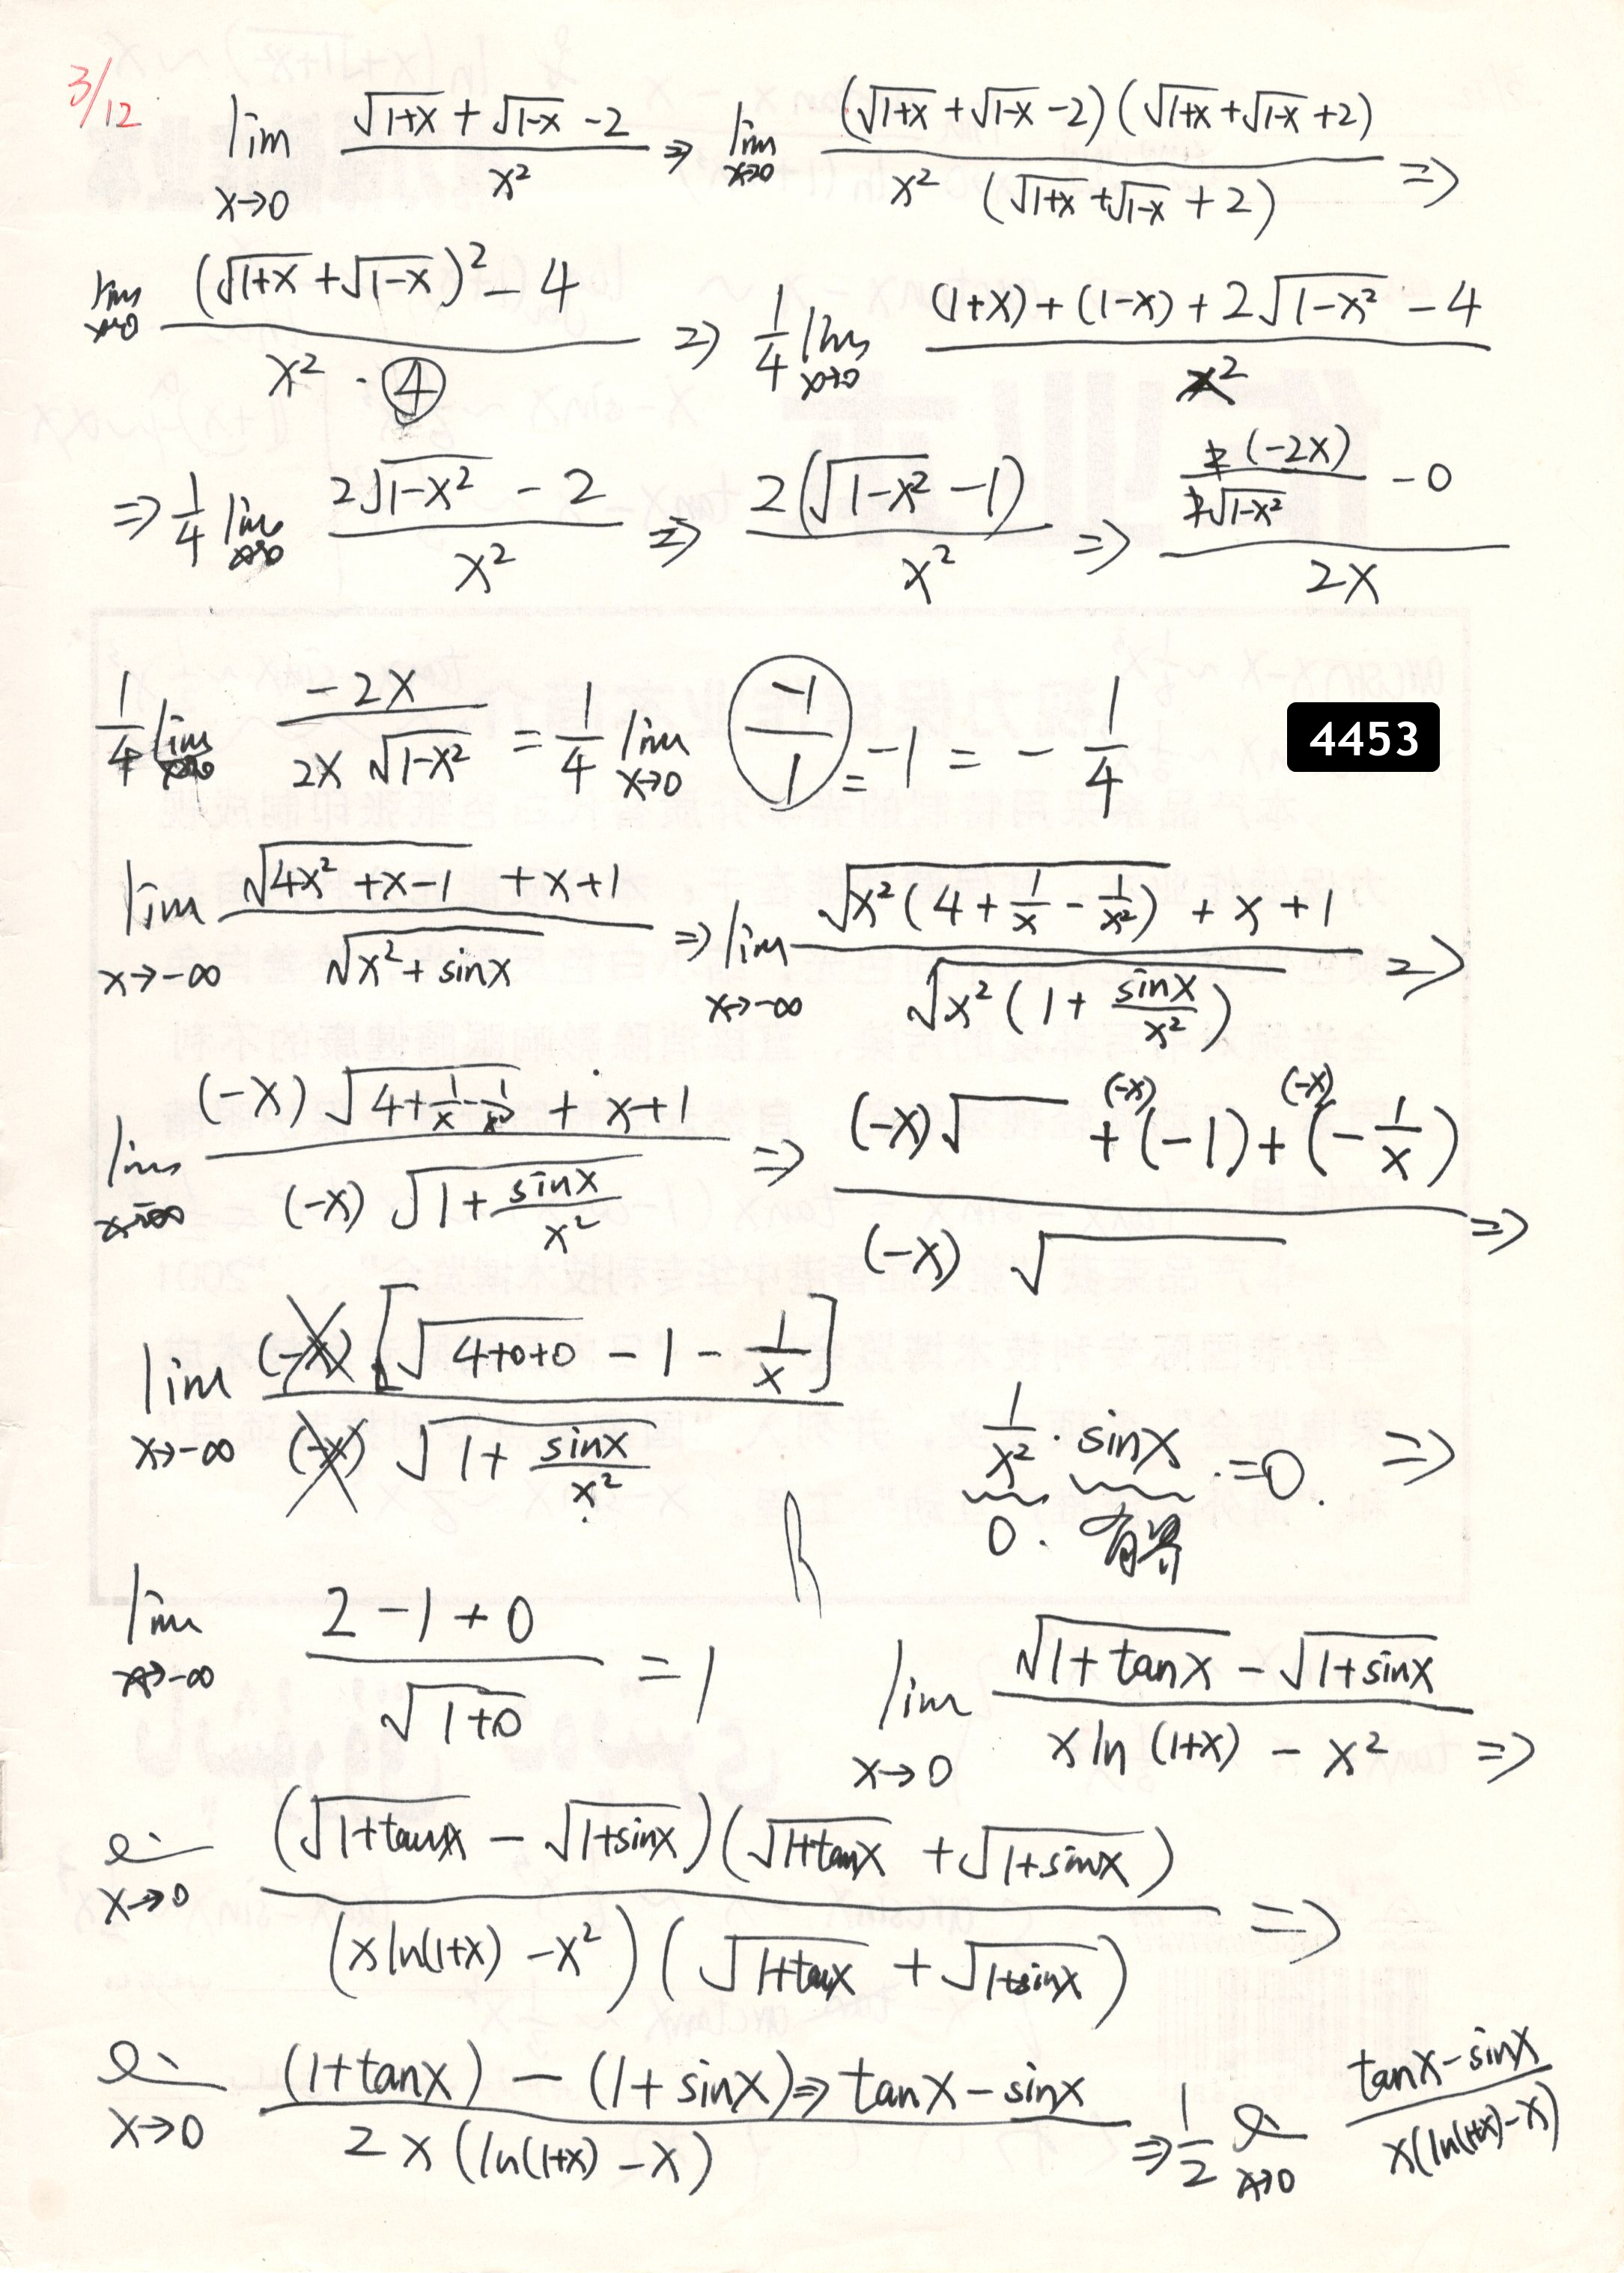 3/12
lim x→0 (√(1+x) + √(1-x) - 2)/x² ⇒ lim x→0 (√(1+x) + √(1-x) - 2)(√(1+x) + √(1-x) + 2)/(x² (√(1+x) + √(1-x) + 2)) ⇒
lim x→0 ((√(1+x) + √(1-x))² - 4)/(x² · 4) ⇒ 1/4 lim x→0 ((1+x) + (1-x) + 2√(1-x²) - 4)/x²
⇒ 1/4 lim x→0 (2√(1-x²) - 2)/x² ⇒ 2(√(1-x²) - 1)/x² ⇒ (2(-2x)/(2√(1-x²)) - 0)/2x
1/4 lim x→0 -2x/(2x √(1-x²)) = 1/4 lim x→0 (-1/1) = -1 = - 1/4
4453
lim x→-∞ (√(4x² + x - 1) + x + 1)/√(x² + sinx) ⇒ lim x→-∞ (√(x²(4 + 1/x - 1/x²)) + x + 1)/√(x²(1 + sinx/x²)) ⇒
lim x→-∞ ((-x)√(4 + 1/x - 1/x²) + x + 1)/((-x)√(1 + sinx/x²)) ⇒ ((-x)√ + (-x)(-1) + (-x)(-1/x))/((-x)√ ) ⇒
lim x→-∞ (-x)[√(4+0+0) - 1 - 1/x]/((-x)√(1 + sinx/x²)) 1/x² · sinx = 0. ⇒
0 · 有界
lim x→-∞ (2 - 1 + 0)/√(1+0) = 1
lim x→0 (√(1+tanx) - √(1+sinx))/(x ln(1+x) - x²) ⇒
x→0 (√(1+tanx) - √(1+sinx))(√(1+tanx) + √(1+sinx))/((x ln(1+x) - x²)(√(1+tanx) + √(1+sinx))) ⇒
x→0 ((1+tanx) - (1+sinx) ⇒ tanx - sinx)/(2x(ln(1+x) - x)) ⇒ 1/2 x→0 (tanx - sinx)/(x(ln(1+x) - x))